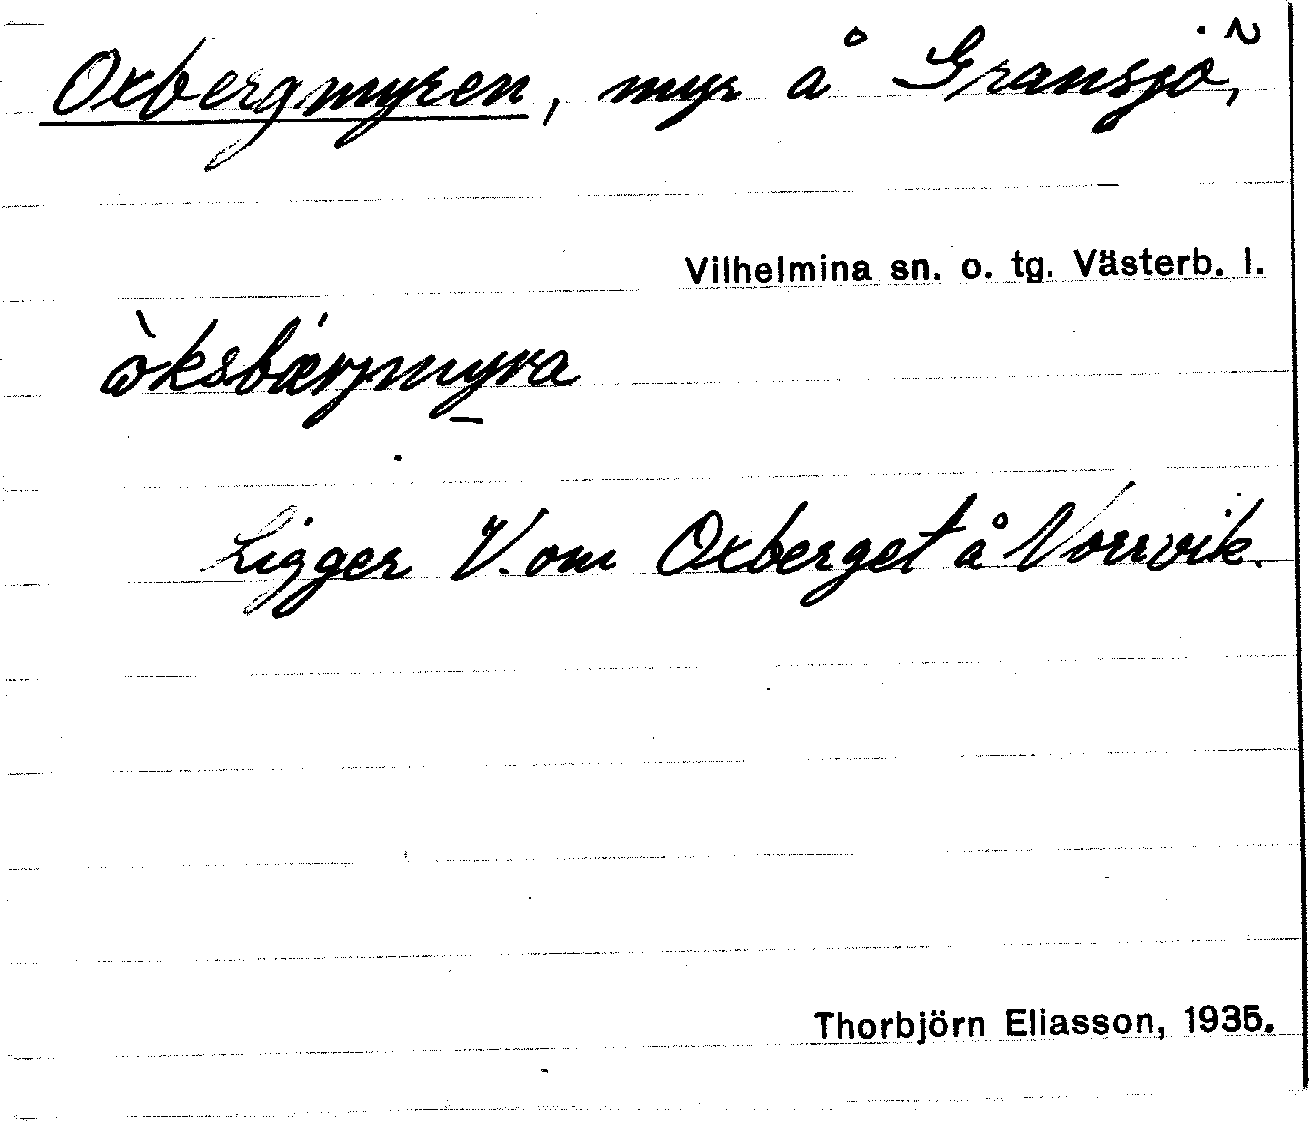 Oxbergmyren, myr å Gransjö,
Vilhelmina sn. o. tg. Västerb. l.
òksbǽrjmyra
Ligger V. om Oxberget å Norrvik.
Thorbjörn Eliasson, 1935.